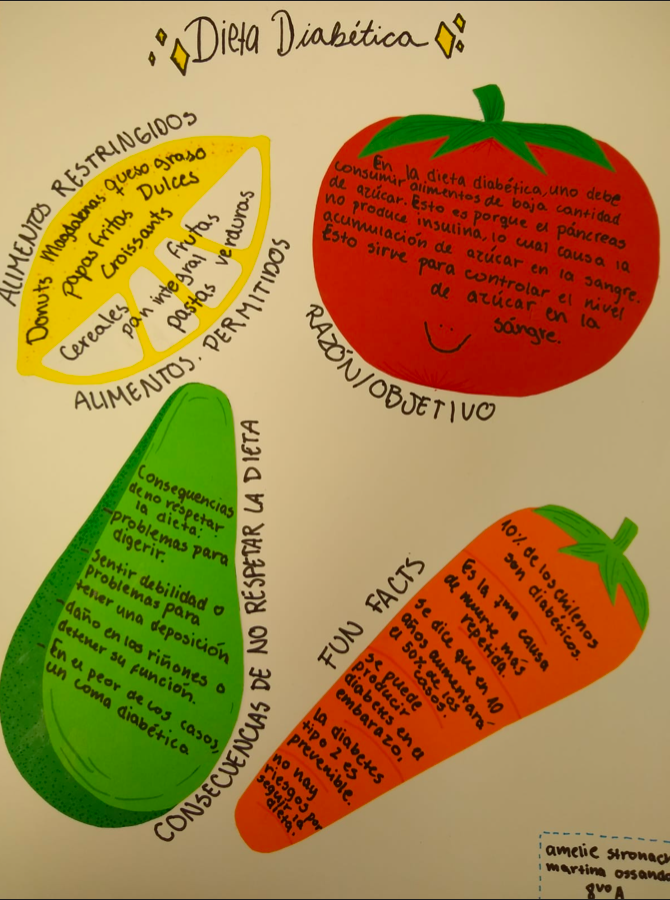 Dieta Diabética
ALIMENTOS RESTRINGIDOS
Donuts Magdalenas queso graso
papas fritas Dulces
Croissants
Cereales
pan integral frutas
pastas verduras
ALIMENTOS. PERMITIDOS
En la dieta diabética, uno debe
consumir alimentos de baja cantidad
de azúcar. Esto es porque el páncreas
no produce insulina, lo cual causa la
acumulación de azúcar en la sangre.
Esto sirve para controlar el nivel
de azúcar en la
sángre.
RAZÓN/OBJETIVO
Consequencias
de no respetar
la dieta:
problemas para
digerir.
sentir debilidad o
problemas para
tener una deposición
daño en los riñones o
detener su función.
En el peor de los casos,
un coma diabética
CONSECUENCIAS DE NO RESPETAR LA DIETA
FUN FACTS
10% de los chilenos
son diabéticos.
Es la 7ma causa
de muerte más
repetida.
se dice que en 10
años aumentará
el 50% de los
casos.
se puede
producir
diabetes en el
embarazo,
La diabetes
tipo 2 es
prevenible.
no hay
riesgos por
seguir la
dieta.
amelie stronach
martina ossando
8vo A